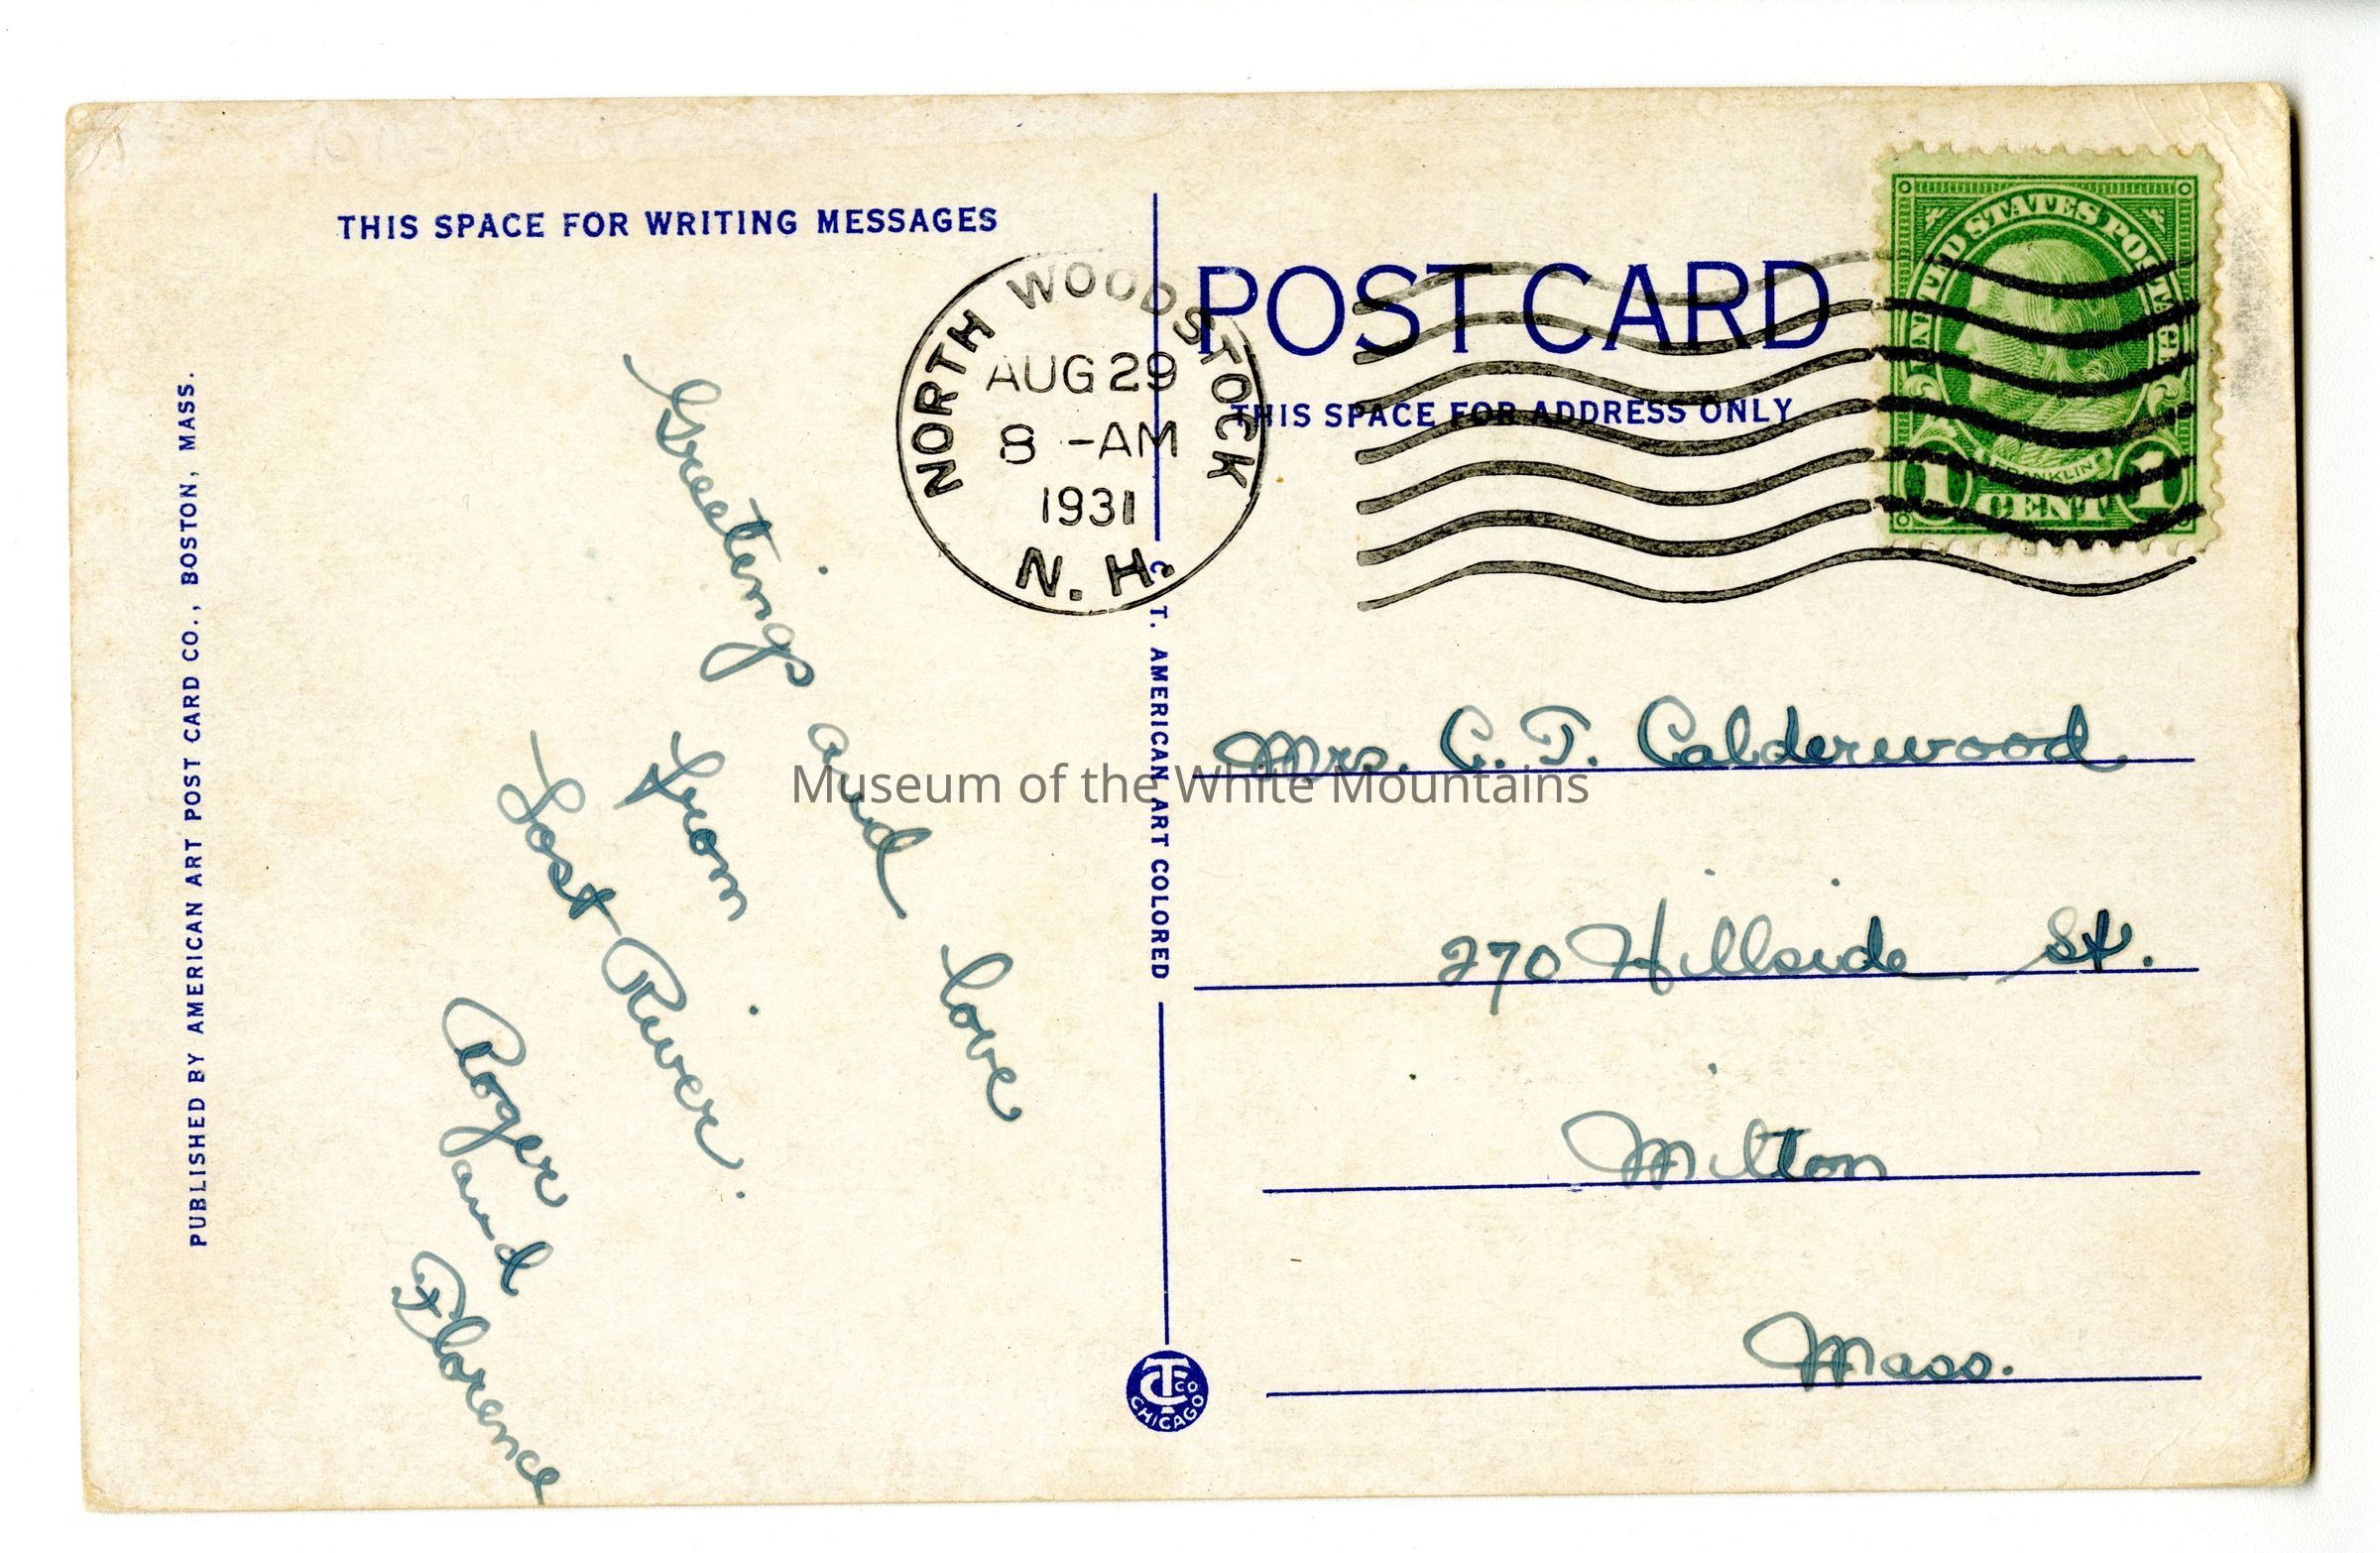 THIS SPACE FOR WRITING MESSAGES
Greetings and love
from
Lost River.
Roger
and
Florence
PUBLISHED BY AMERICAN ART POST CARD CO., BOSTON, MASS.
NORTH WOODSTOCK
AUG 29
8 -AM
1931
N. H.
C. T. AMERICAN ART COLORED
CT CO
CHICAGO
POST CARD
THIS SPACE FOR ADDRESS ONLY
UNITED STATES POSTAGE
FRANKLIN
1 CENT 1
Mrs. C. T. Calderwood
270 Hillside St.
Milton
Mass.
Museum of the White Mountains